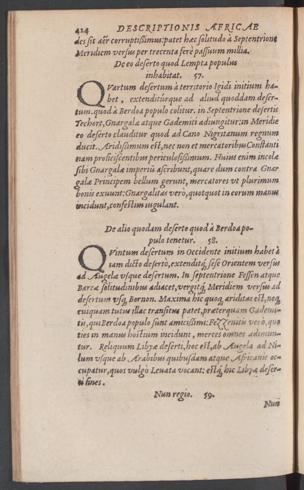 424 DESCRIPTIONIS AFRICAE
des sit aër corruptissimus: patet hæc solitudo à Septentrione
Meridiem versus per trecenta ferè passuum millia.
De eo deserto quod Lempta populus
inhabitat. 57.
QVartum desertum à territorio Igidi initium ha-
bet, extenditúrque ad aliud quoddam deser-
tum, quod à Berdoa populo colitur. in Septentrione desertis
Techort, Gnargalæ atque Gademiti adiungitur: in Meridie
eo deserto clauditur quod ad Cano Nigritanum regnum
ducit. Aridissimum est, nec non et mercatoribus Constanti
nam proficiscentibus periculosissimum. Huius enim incolæ
sibi Gnargalæ imperiū ascribunt, quare dum contra Gnar-
galæ Principem bellum gerunt, mercatores vt plurimum
bonis exuunt: Gnargalitas verò, quotquot in eorum manus
incidunt, confestim iugulant.
De alio quodam deserto quod à Berdoa po-
pulo tenetur. 58.
QVintum desertum in Occidente initium habet à
iam dicto deserto, extenditq; sese Orientem versus
ad Augela vsque desertum. In septentrione Fessen atque
Barcæ solitudinibus adiacet, vergitq; Meridiem versus ad
desertum vsq; Bornon. Maxima hic quoq; ariditas est, neq;
cuiquam tutus illac transitus patet, præterquam Gademi-
tis, qui Berdoa populo sunt amicissimi: Fezzenitis verò, quo
ties in manus hostium incidunt, mortes adimun-
tur. Reliquum Libyæ deserti, hoc est, ab Augela ad Ni-
lum vsque ab Arabibus quibusdam atque Africanis oc-
cupatur, quos vulgò Leuata vocant: estq; hic Libyæ deser-
ti finis.
Nun regio. 59.
Nun